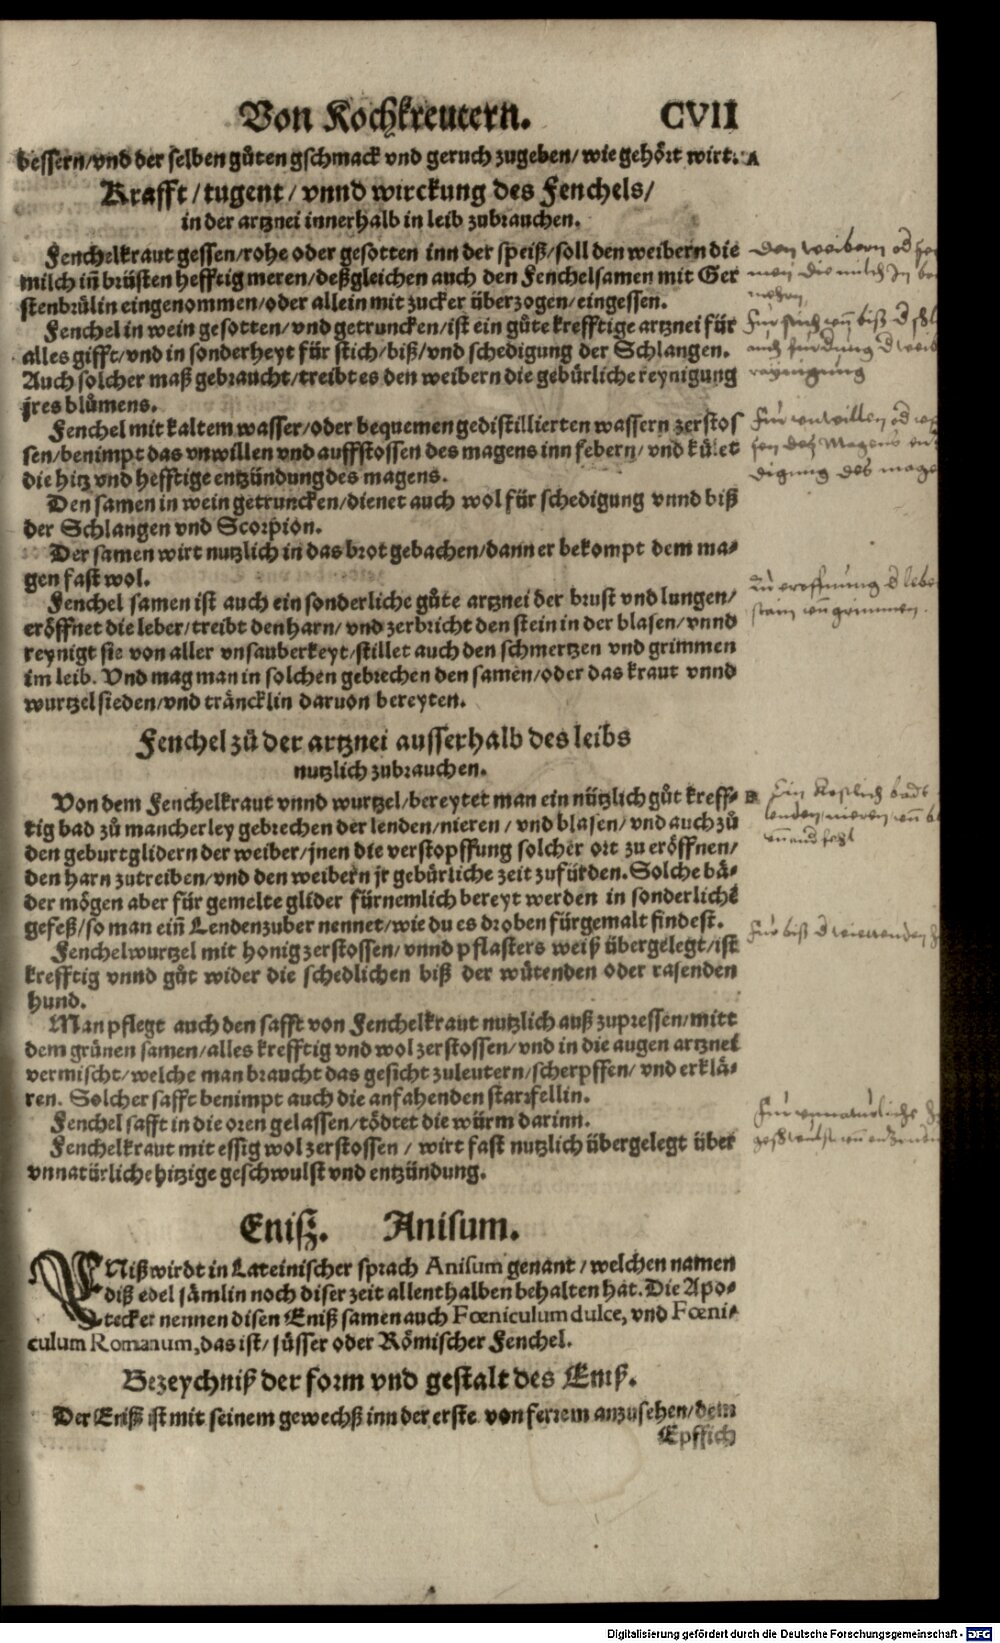 Von Kochkreutern. CVII
bessern/vnd der selben gůten gschmack vnd geruch zugeben/wie gehört wirt. A
Krafft/tugent/vnnd wirckung des Fenchels/
in der artznei innerhalb in leib zubrauchen.
Fenchelkraut gessen/rohe oder gesotten inn der speiß/soll den weibern die
milch iñ brüsten hefftig meren/deßgleichen auch den Fenchelsamen mit Ger
stenbrülin eingenommen/oder allein mit zucker überzogen/eingessen.
Fenchel in wein gesotten/vnd getruncken/ist ein gůte krefftige artznei für
alles gifft/vnd in sonderheyt für stich/biß/vnd schedigung der Schlangen.
Auch solcher maß gebraucht/treibt es den weibern die gebürliche reynigung
jres blůmens.
Fenchel mit kaltem wasser/oder bequemen gedistillierten wassern zerstos
sen/benimpt das vnwillen vnd auffstossen des magens inn febern/vnd kület
die hitz vnd hefftige entzündung des magens.
Den samen in wein getruncken/dienet auch wol für schedigung vnnd biß
der Schlangen vnd Scorpion.
Der samen wirt nutzlich in das brot gebachen/dann er bekompt dem ma-
gen fast wol.
Fenchel samen ist auch ein sonderliche gůte artznei der brust vnd lungen/
eröffnet die leber/treibt den harn/vnd zerbricht den stein in der blasen/vnnd
reynigt sie von aller vnsauberkeyt/stillet auch den schmertzen vnd grimmen
im leib. Vnd mag man in solchen gebrechen den samen/oder das kraut vnnd
wurtzel sieden/vnd träncklin daruon bereyten.
Fenchel zů der artznei ausserhalb des leibs
nutzlich zubrauchen.
Von dem Fenchelkraut vnnd wurtzel/bereytet man ein nützlich gůt kreff- B
tig bad zů mancherley gebrechen der lenden/nieren/vnd blasen/vnd auch zů
den geburtglidern der weiber/jnen die verstopffung solcher ort zu eröffnen/
den harn zutreiben/vnd den weibern jr gebürliche zeit zufürden. Solche bä-
der mögen aber für gemelte glider fürnemlich bereyt werden in sonderliche
gefeß/so man eiñ Lendenzuber nennet/wie du es droben fürgemalt findest.
Fenchelwurtzel mit honig zerstossen/vnnd pflasters weiß übergelegt/ist
krefftig vnnd gůt wider die schedlichen biß der wütenden oder rasenden
hund.
Man pflegt auch den safft von Fenchelkraut nutzlich auß zupressen/mitt
dem grünen samen/alles krefftig vnd wol zerstossen/vnd in die augen artznei
vermischt/welche man braucht das gesicht zuleutern/scherpffen/vnd erklä-
ren. Solcher safft benimpt auch die anfahenden starrfellin.
Fenchel safft in die oren gelassen/tödtet die würm darinn.
Fenchelkraut mit essig wol zerstossen/wirt fast nutzlich übergelegt über
vnnatürliche hitzige geschwulst vnd entzündung.
Eniß. Anisum.
ENiß wirdt in Lateinischer sprach Anisum genant/welchen namen
diß edel sämlin noch diser zeit allenthalben behalten hat. Die Apo-
tecker nennen disen Eniß samen auch Fœniculum dulce, vnd Fœni-
culum Romanum, das ist/süsser oder Römischer Fenchel.
Bezeychniß der form vnd gestalt des Eniß.
Der Eniß ist mit seinem gewechß inn der erste von ferrem anzusehen/dem
Epffich
Digitalisierung gefördert durch die Deutsche Forschungsgemeinschaft - DFG